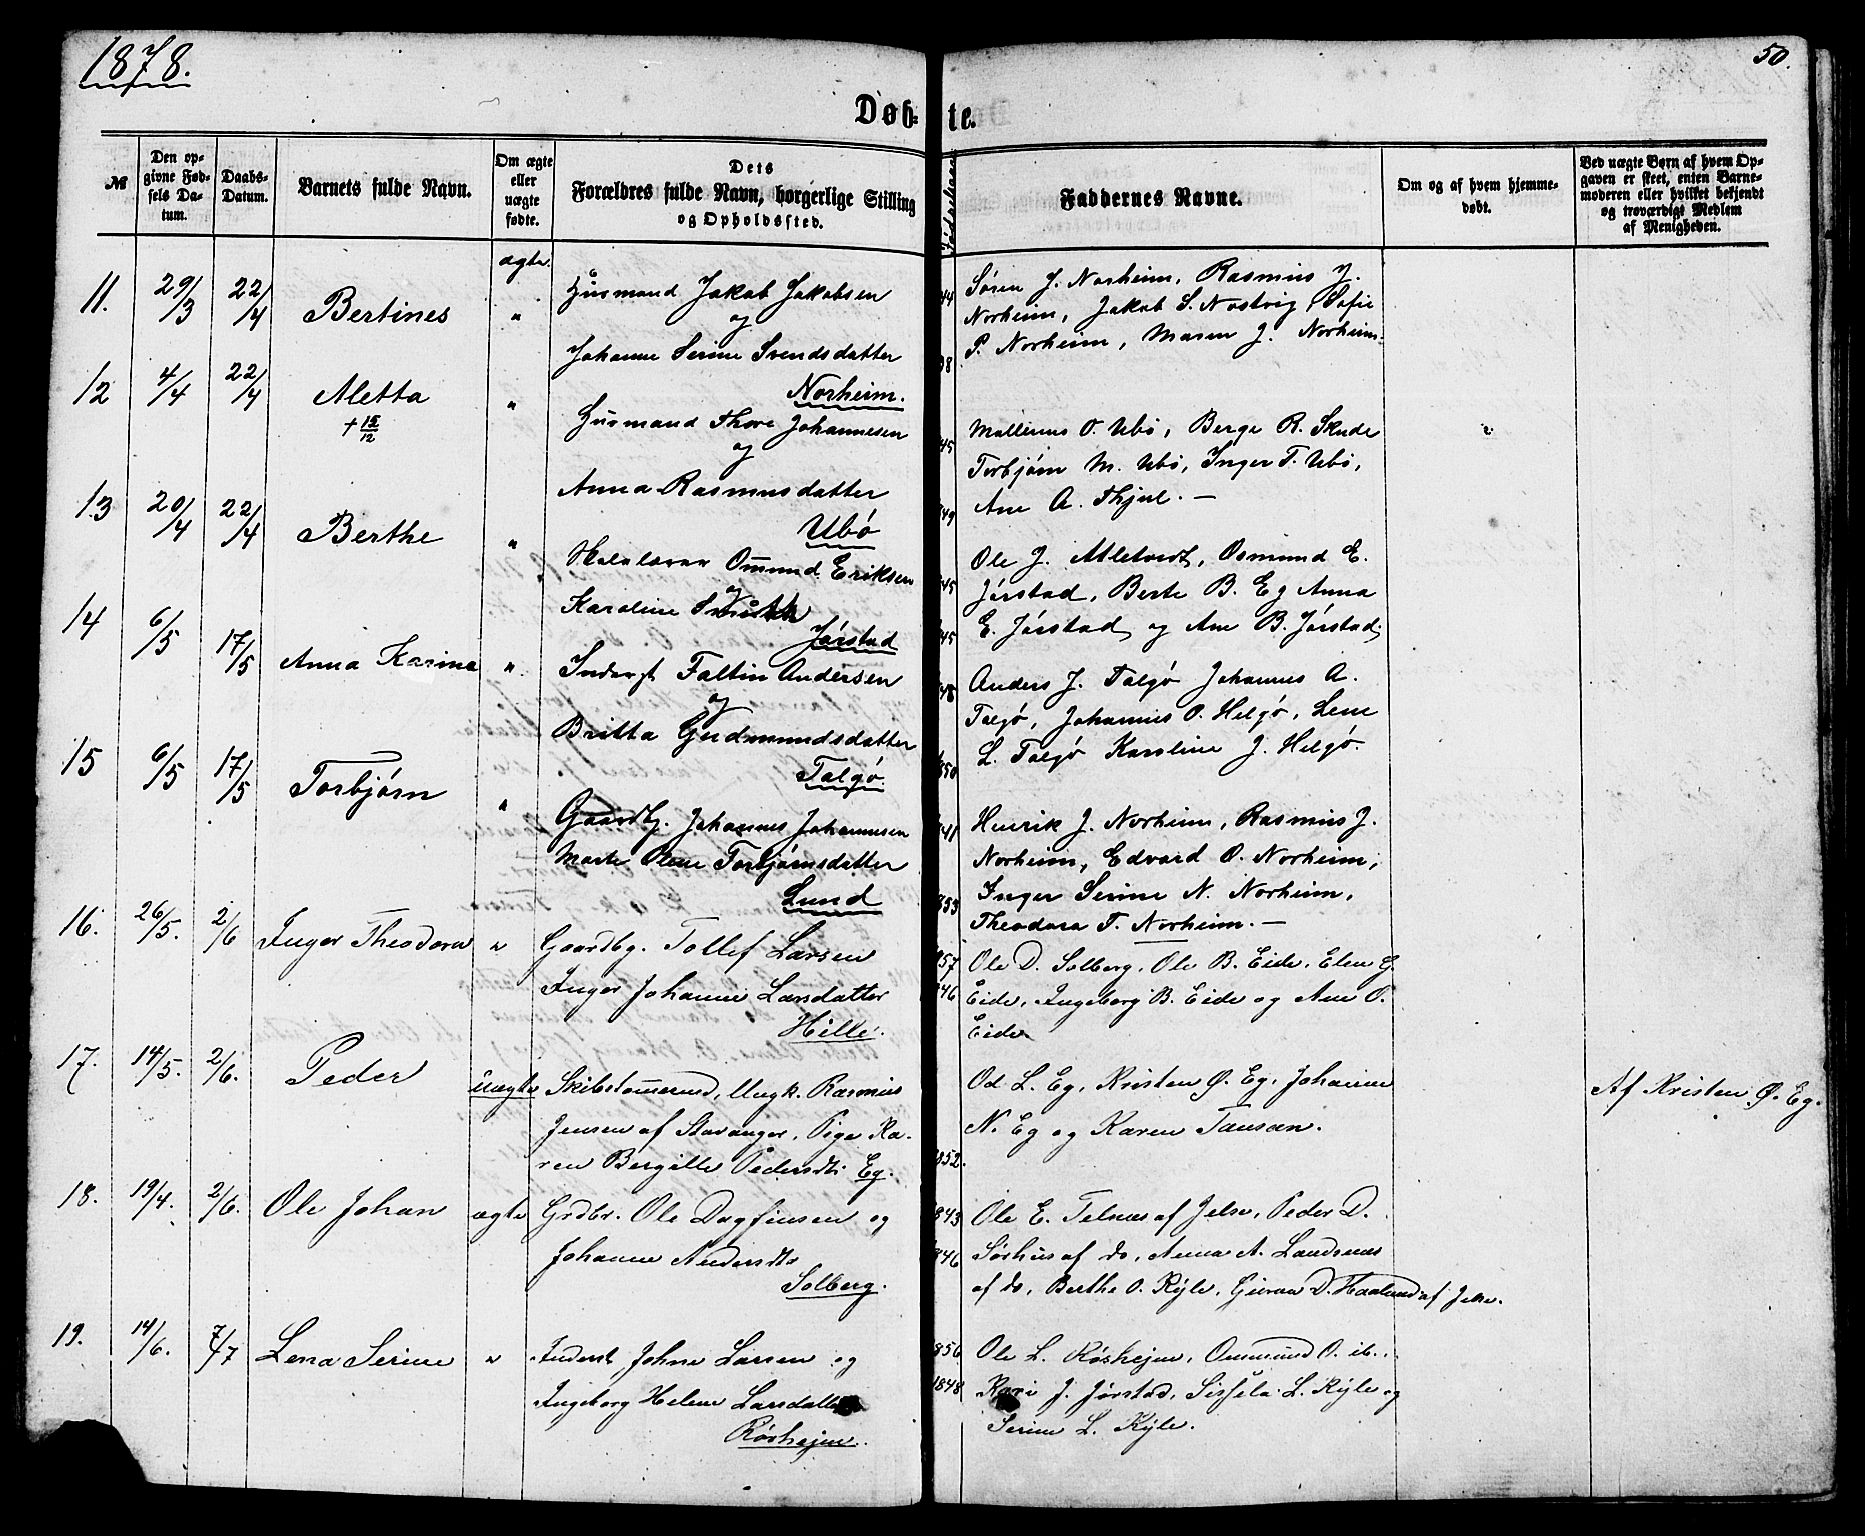 1878.
50.
Døb-te.
№
Den opgivne Fødsels Datum.
Daabs-Datum.
Barnets fulde Navn.
Om ægte eller uægte fødte.
Dets Forældres fulde Navn, borgerlige Stilling og Opholdssted.
Faddernes Navne.
Om og af hvem hjemmedøbt.
Ved uægte Børn af hvem Opgaven er skeet, enten Barnemoderen eller hvilket bekjendt og troværdigt Medlem af Menigheden.
11. 29/3 22/4 Bertines ægte "
Husmand Jakob Jakobsen
og
Johanne Serine Svendsdatter
Norheim.
44
Søren J. Norheim, Rasmus J.
Norheim, Jakob S. Nostvig, Sofie
P. Norheim, Maren J. Norheim.
12 4/4 22/4 Aletta "
+ 15/12
Husmand Thore Johannesen
og
Anna Rasmusdatter
Ubø
45
49
Mallinus O. Ubø, Berge R. Skude
Torbjørn M. Ubø, Inger T. Ubø,
Ane A. Thjul. —
13 20/4 22/4 Berthe "
Ommund Eriksen
og
Karoline
Jørstad
45
45
Ole J. Atletvedt, Osmund E.
Jørstad, Berte B. Eg Anna
E. Jørstad, og Ane B. Jørstad.
14 6/5 17/5 Anna Karina "
Inderst Faltin Andersen
og
Britta Gudmundsdatter
Talgø
48
850
Anders J. Talgø Johannes A.
Talgø, Johannes O. Helgø, Lene
L. Talgø Karoline J. Helgø.
15 6/5 17/5 Torbjørn "
Gaardb. Johannes Johannesen
Marte Olene Torbjørnsdatter
Lund
841
853
Henrik J. Norheim, Rasmus J.
Norheim, Edvard O. Norheim,
Inger Serine N. Norheim,
Theodora T. Norheim. —
16. 26/5. 2/6 Inger Theodora "
Gaardbg. Tollef Larsen
Inger Johanne Larsdatter
Hille.
857
846
Ole D. Solberg, Ole B. Eide, Elen G.
Eide, Ingeborg B. Eide og Ane O.
Eide
17. 14/5. 2/6. Peder uægte
Skibstømmermd, Ungk. Rasmus
Jensen af Stavanger, Pige Ka-
ren Bergitte Pedersdtr. Eg.
852.
Od. L. Eg, Kristen Ø. Eg, Johanne
N. Eg og Karen Tansan.
Af Kristen Ø. Eg.
18. 19/4. 2/6. Ole Johan ægte
Grdbr. Ole Dagfinsen og
Johanne Andersdtr
Solberg.
843
846
Ole E. Telnæs af Jelse, Peder D.
Sørhus af do, Anna A. Landsnæs
af do, Berthe O. Kyle, D. Haaland af Jelse.
19. 14/6. 7/7 Lena Serine "
Inderst Johne Larsen og
Ingeborg Helene Larsdatter
Røshejm.
856
1848
Ole L. Røshejm, Ommund O. ib.,
Kari J. Jørstad, Sissela L. Kyle og
Serine L. Kyle.